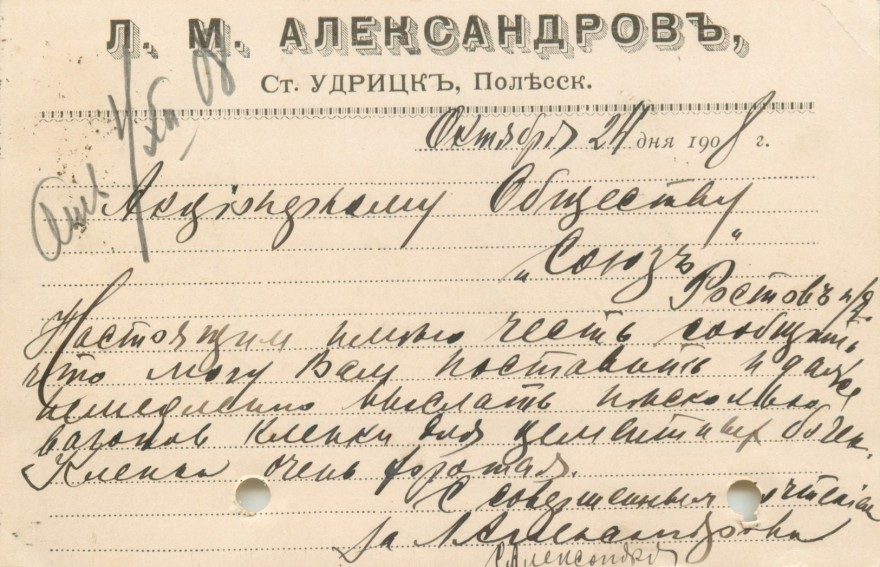 Л. М. АЛЕКСАНДРОВЪ,
Ст. УДРИЦКЪ, Полѣсск.
Октября 24 дня 1908 г.
Акціонерному Обществу
„Союзъ"
Ростовъ н/Д.
Настоящим имѣю честь сообщить
что могу Вам поставить и даже
немедленно выслать нѣсколько
вагонов клепки для цементных бочек.
Клепка очень хорошая.
С совершенным почтеніем
за Л Александрова
С Александров